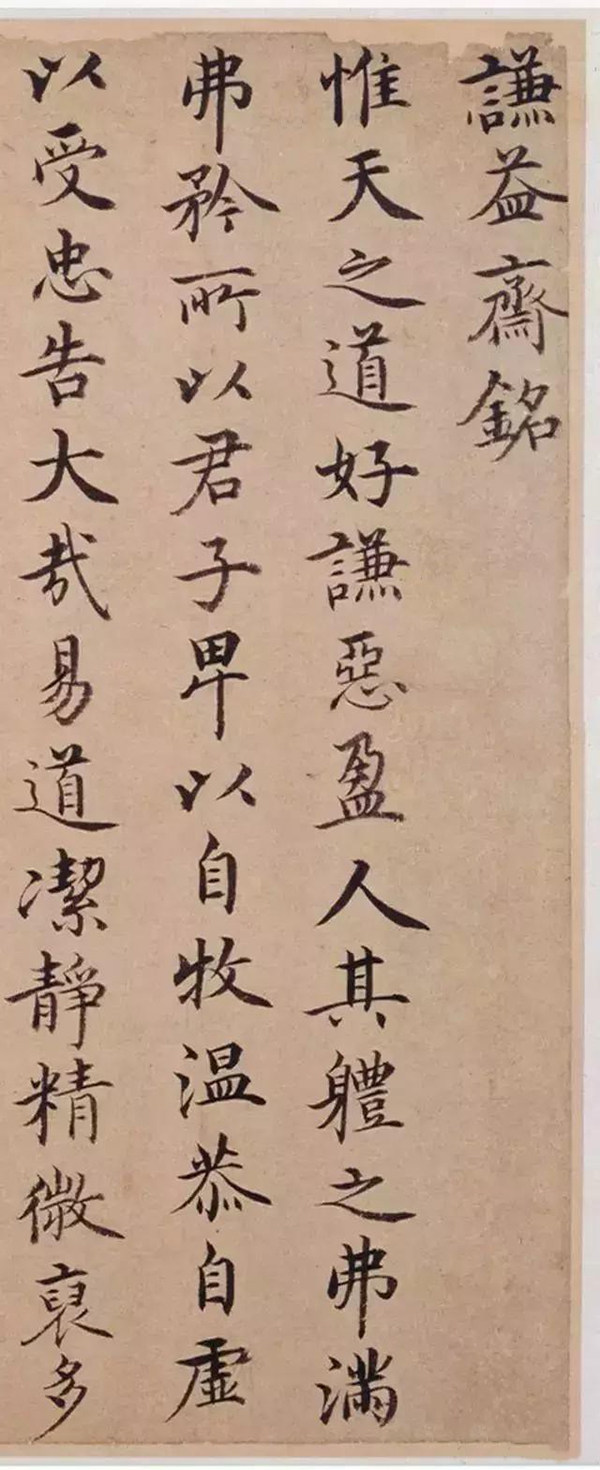 謙益齋銘
惟天之道好謙惡盈人其軆之弗滿
弗矜所以君子卑以自牧温恭自虛
以受忠告大哉易道潔靜精微裒多